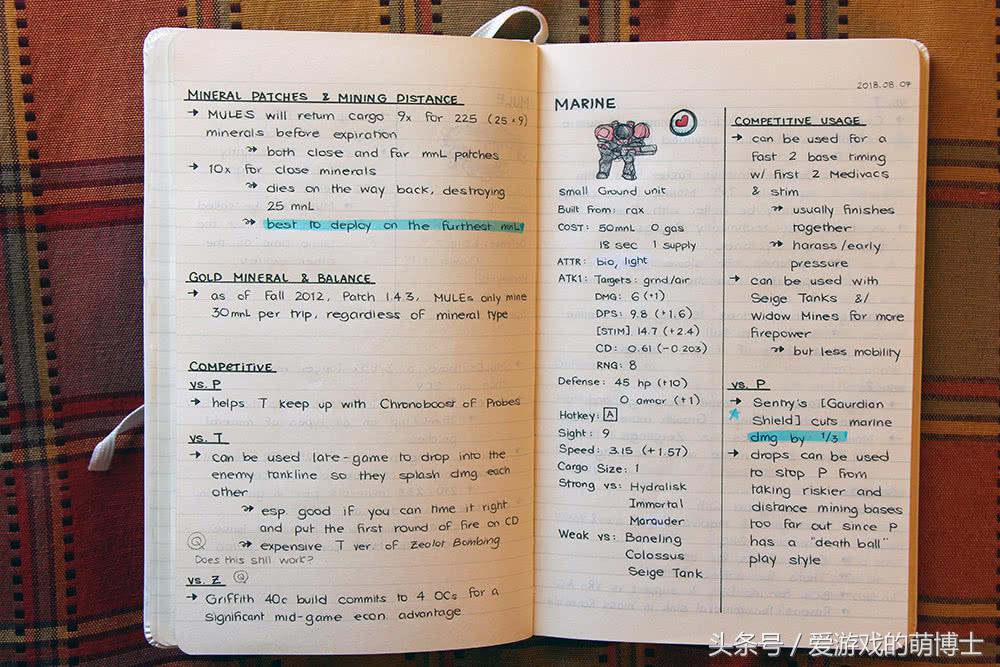 MINERAL PATCHES & MINING DISTANCE
→ MULES will return cargo 9x for 225 (25×9)
minerals before expiration
→ both close and far mnL patches
→ 10x for close minerals
→ dies on the way back, destroying
25 mnL
→ best to deploy on the furthest mnL
GOLD MINERAL & BALANCE
→ as of Fall 2012, Patch 1.4.3, MULEs only mine
30mnL per trip, regardless of mineral type
COMPETITIVE
vs. P
→ helps T keep up with Chronoboost of Probes
vs. T
→ can be used late-game to drop into the
enemy tankline so they splash dmg each
other
→ esp good if you can time it right
and put the first round of fire on CD
Q → expensive T ver. of Zealot Bombing
Does this still work?
vs. Z Q
→ Griffith 40c build commits to 4 OCs for a
significant mid-game econ. advantage
2018.08.07
MARINE
Small Ground unit
Built From: rax
COST: 50mnL 0 gas
18 sec 1 supply
ATTR: bio, light
ATK1: Targets: grnd/air
DMG: 6 (+1)
DPS: 9.8 (+1.6)
[STIM] 14.7 (+2.4)
CD: 0.61 (-0.203)
RNG: 8
Defense: 45 hp (+10)
0 amor (+1)
Hotkey: A
Sight: 9
Speed: 3.15 (+1.57)
Cargo Size: 1
Strong vs: Hydralisk
Immortal
Marauder
Weak vs: Baneling
Colossus
Seige Tank
COMPETITIVE USAGE
→ can be used for a
fast 2 base timing
w/ first 2 Medivacs
& stim
→ usually finishes
together
→ harass/early
pressure
→ can be used with
Seige Tanks &/
Widow Mines for more
firepower
→ but less mobility
vs. P
→ Sentry's [Gaurdian
Shield] cuts marine
dmg by 1/3
→ drops can be used
to stop P from
taking riskier and
distance mining bases
too far out since P
has a "death ball"
play style
头条号 / 爱游戏的萌博士